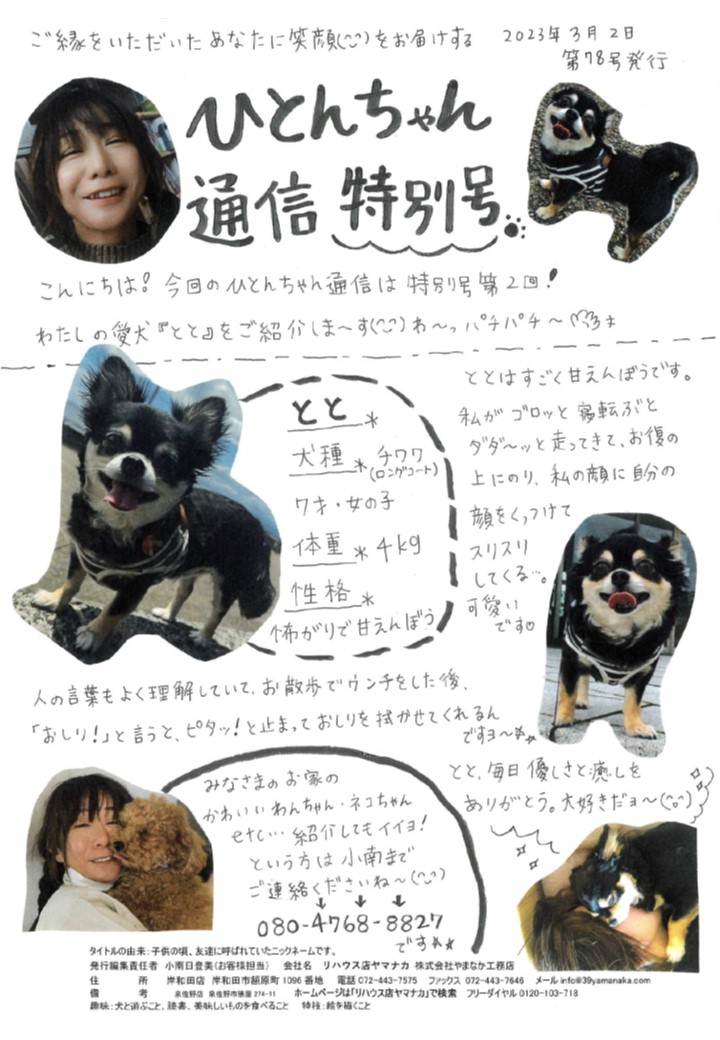 ご縁をいただいたあなたに笑顔(^^)をお届けする
2023年3月2日
第78号発行
ひとんちゃん
通信 特別号
こんにちは!今回のひとんちゃん通信は特別号第2回!
わたしの愛犬『とと』をご紹介しま〜す(^^)わ〜っパチパチ〜
とと*
犬種*チワワ
(ロングコート)
7才・女の子
体重*4kg
性格*
怖がりで甘えんぼう
ととはすごく甘えんぼうです。
私がゴロッと寝転ぶと
ダダ〜ッと走ってきて、お腹の
上にのり、私の顔に自分の
顔をくっつけて
スリスリ
してくる…。
可愛い
です
人の言葉もよく理解していて、お散歩でウンチをした後、
「おしり!」と言うと、ピタッ!と止まっておしりを拭かせてくれるん
ですヨ〜
とと、毎日優しさと癒しを
ありがとう。大好きだョ〜(^o^)
みなさまのお家の
かわいいわんちゃん・ネコちゃん
etc…紹介してもイイヨ!
という方は小南まで
ご連絡くださいね〜(^^)
↓ ↓ ↓
080-4768-8827
です**
タイトルの由来:子供の頃、友達に呼ばれていたニックネームです。
発行編集責任者 小南日登美(お客様担当) 会社名 リハウス店ヤマナカ 株式会社やまなか工務店
住 所 岸和田店 岸和田市額原町1096番地 電話 072-443-7575 ファックス 072-443-7646 メール info@39yamanaka.com
備 考 泉佐野店 泉佐野市俵屋274-11 ホームページは「リハウス店ヤマナカ」で検索 フリーダイヤル 0120-103-718
趣味:犬と遊ぶこと、読書、美味しいものを食べること 特技:絵を描くこと